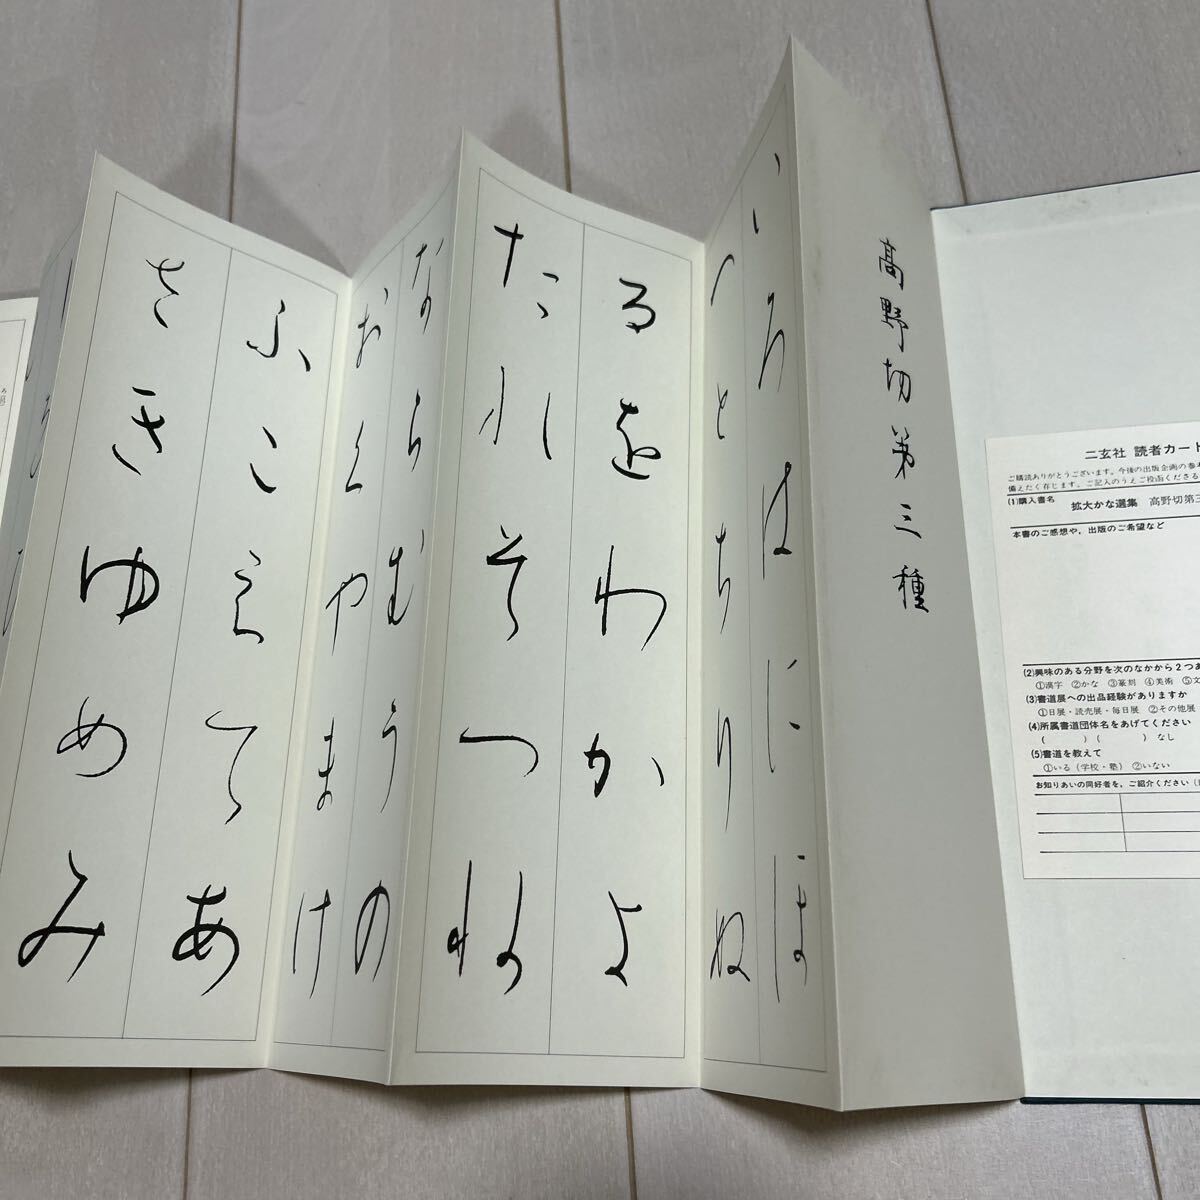 二玄社 読者カート
ご購読ありがとうございます。今後の出版企画の参考
備えたく存じます。ご記入のうえご投函くださる
(1)購入書名
拡大かな選集 高野切第三
本書のご感想や、出版のご希望など
(2)興味のある分野を次のなかから2つあ
①漢字 ②かな ③篆刻 ④美術 ⑤文
(3)書道展への出品経験がありますか
①日展・読売展・毎日展 ②その他展
(4)所属書道団体名をあげてください
( ) ( ) なし
(5)書道を教えて
①いる(学校・塾) ②いない
お知りあいの同好者を、ご紹介ください
高野切第三種
いろはにほ
へとちりぬ
るをわかよ
たれそつね
ならむうの
おくやまけ
ふこえてあ
さきゆめみ